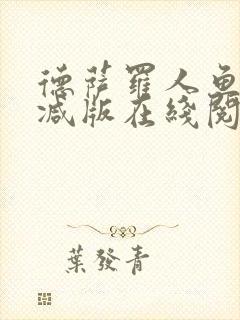 德薩羅人魚
減版在綫閱
葉發青